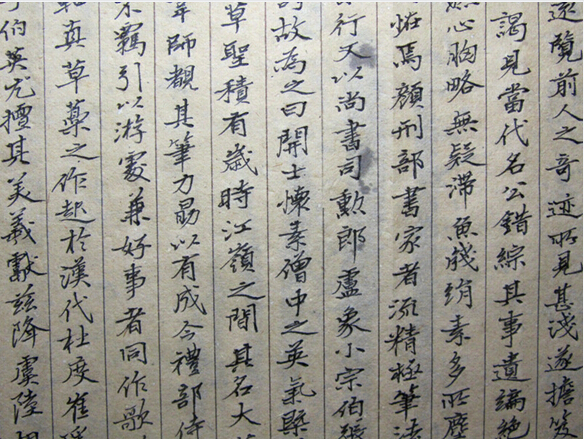 覽前人之奇迹所見甚淺遂擔笈
謁見當代名公錯綜其事遺編絕
然心胸略無疑滯魚牋絹素多所塵
恠焉顏刑部書家者流精極筆法
行又以尚書司勳郎盧象小宗伯張
故為之曰開士懷素僧中之英氣槩
草聖積有歲時江嶺之間其名大
師覩其筆力勗以有成今禮部侍
不羈引以游處兼好事者同作歌
真草藁之作起於漢代杜度崔瑗
伯英尤擅其美義獻茲降虞陸